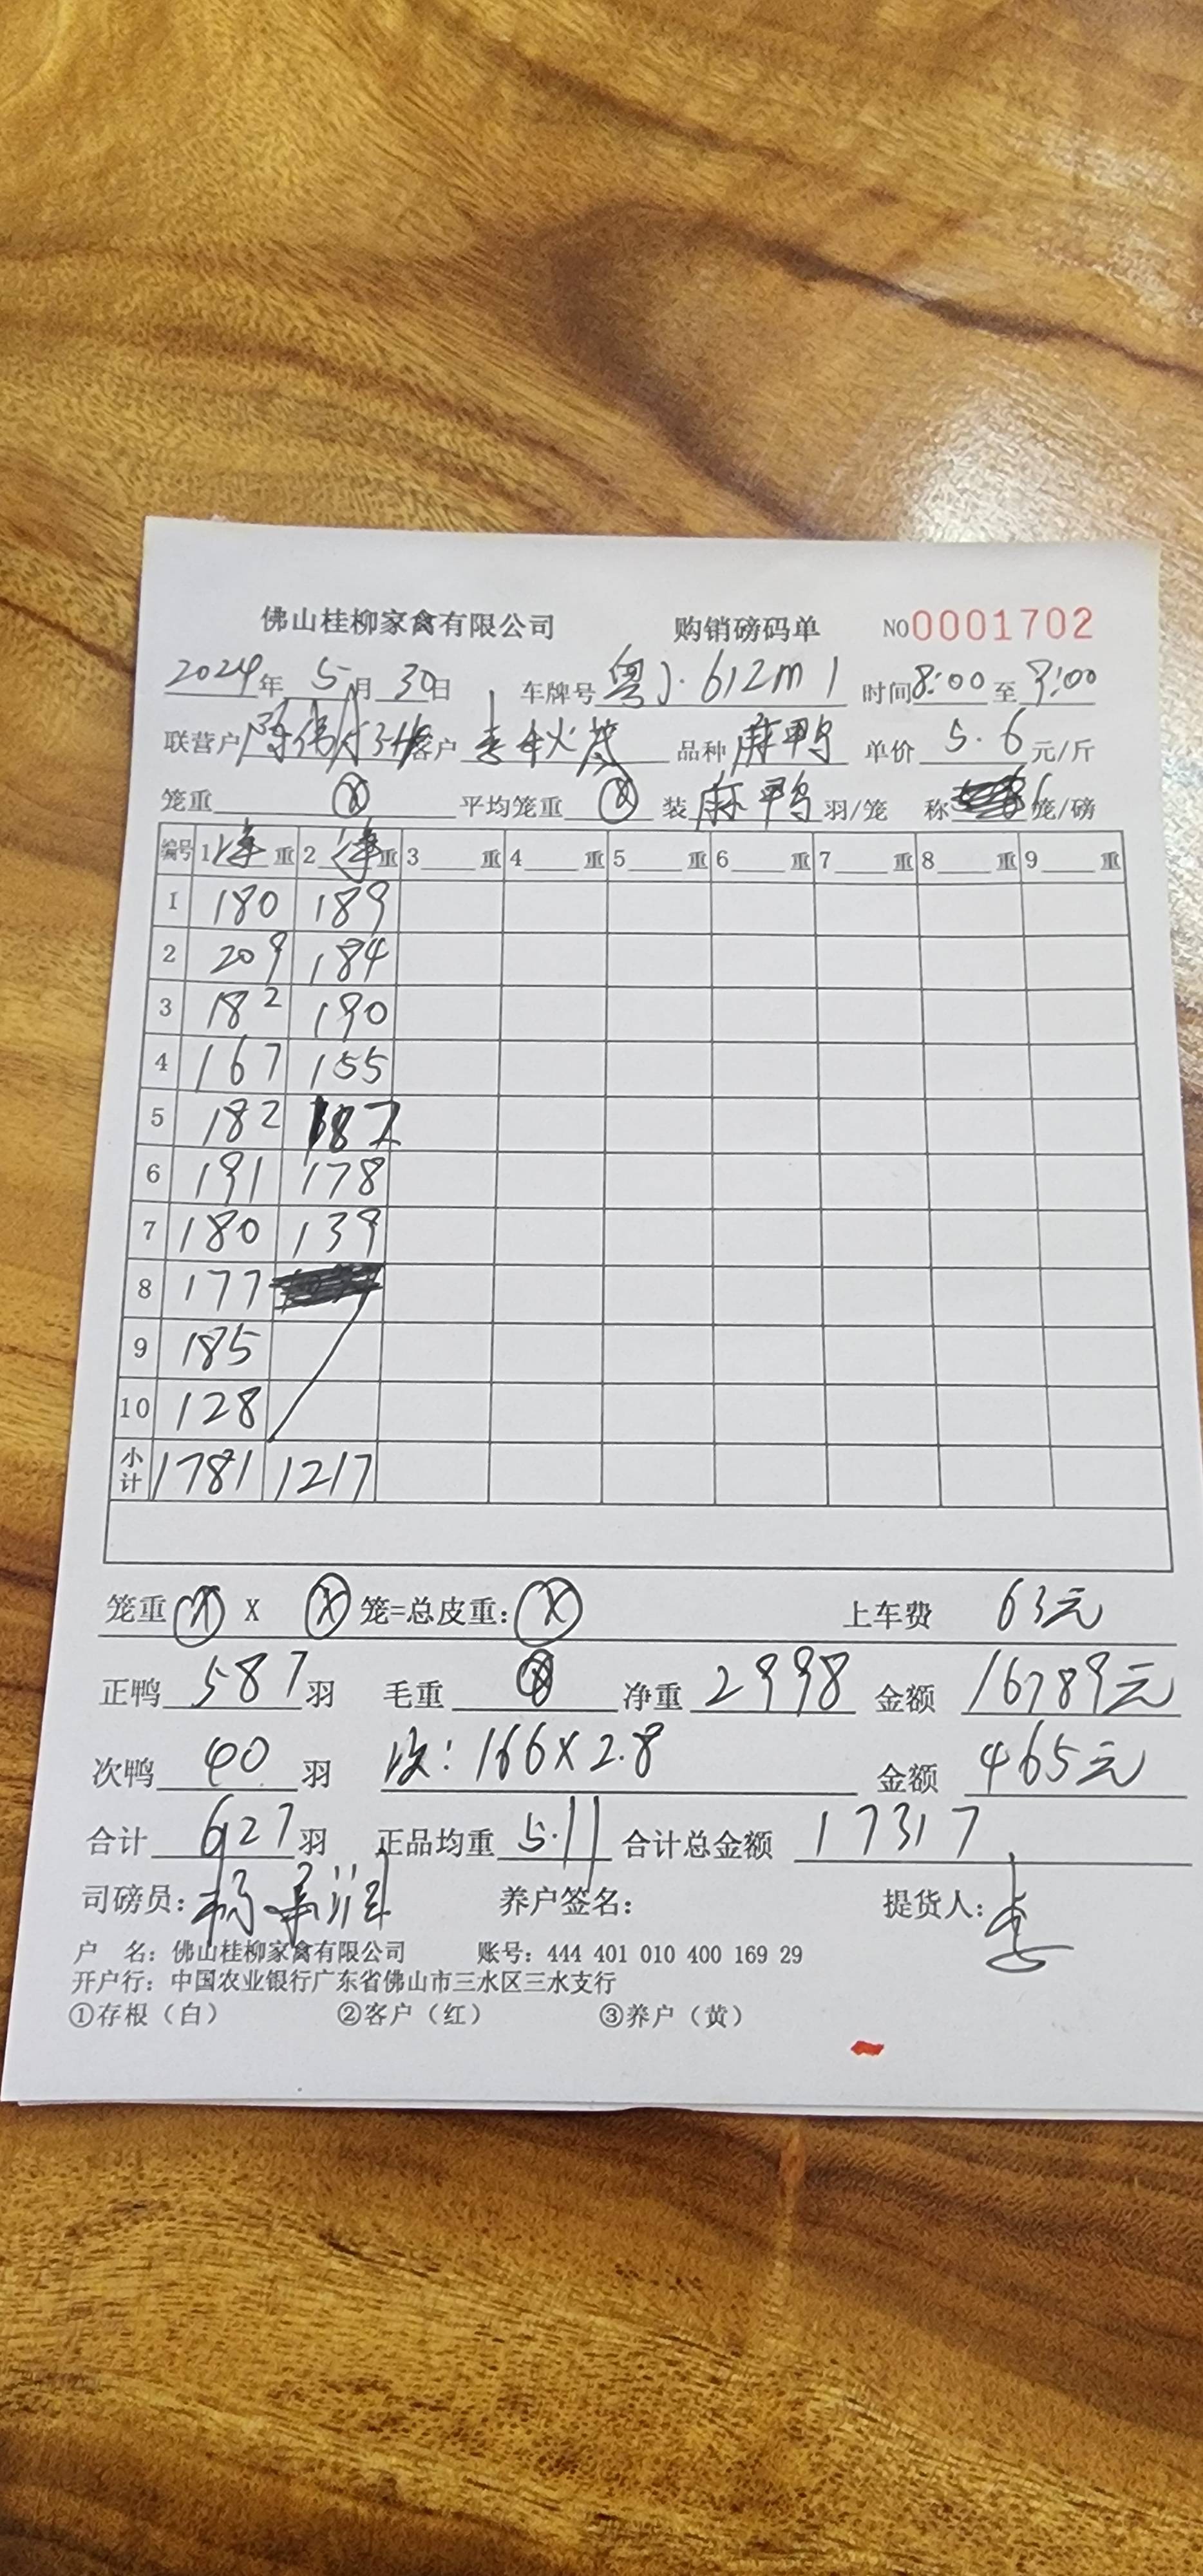 佛山桂柳家禽有限公司 购销磅码单 NO0001702
2024年 5月 30日 车牌号 粤J·612m1 时间8:00至9:00
联营户 客户 李秋 品种 麻鸭 单价 5.6 元/斤
笼重 ⓧ 平均笼重 ⓧ 装 麻鸭 羽/笼 称 6 笼/磅
编号 1 净 重 2 净 重 3 重 4 重 5 重 6 重 7 重 8 重 9 重
1 180 189
2 209 184
3 182 190
4 167 155
5 182 182
6 191 178
7 180 139
8 177
9 185
10 128
小计 1781 1217
笼重 ⓧ X ⓧ 笼=总皮重：ⓧ 上车费 63元
正鸭 587 羽 毛重 ⓧ 净重 2998 金额 16789元
次鸭 40 羽 次：166X2.8 金额 465元
合计 627 羽 正品均重 5.11 合计总金额 17317
司磅员：杨 养户签名： 提货人：李
户 名：佛山桂柳家禽有限公司 账号：444 401 010 400 169 29
开户行：中国农业银行广东省佛山市三水区三水支行
①存根（白） ②客户（红） ③养户（黄）